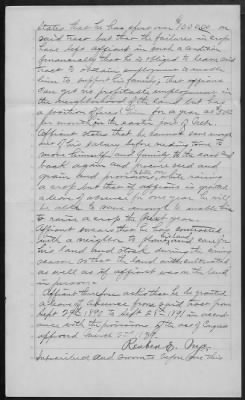 states that he has spent over $100.00 on
said tract but that the failures in crop
have left affiant in such a condition
financially that he is obliged to leave said
tract to obtain employment to enable
him to support his family; that affiant
can get no profitable employment in
the neighborhood of the land but has
a position offered him for a year at $
per month in the eastern part of
Affiant states that he cannot save enough
out of his salary before seeding time to
move himself and family to the east and
back again and procure seed and
grain and provisions while raising
a crop but that if affiant is granted
a leave of absence for one year he will
be able to save enough to enable him
to raise a crop the next year.
Affiant swears that he has contracted
with a neighbor to plow and care for
his land and stock during the
season so that the land will be cultivated
as well as if affiant was on the land
in person.
Affiant therefore asks that he be granted
a leave of absence from said tract from
Sept 29th 1890 to Sept 28th 1891 in accord
ance with the provisions of the act of Congress
approved March 2nd 1889.
Reuben E.
subscribed and sworn to before me this